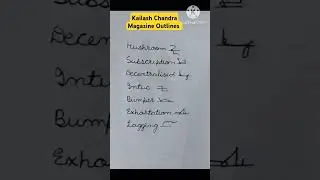 Kailash Chandra
Magazine Outlines
Mushroom
Subscription
Decentralised
Intuc
Bumper
Exhortation
Lagging